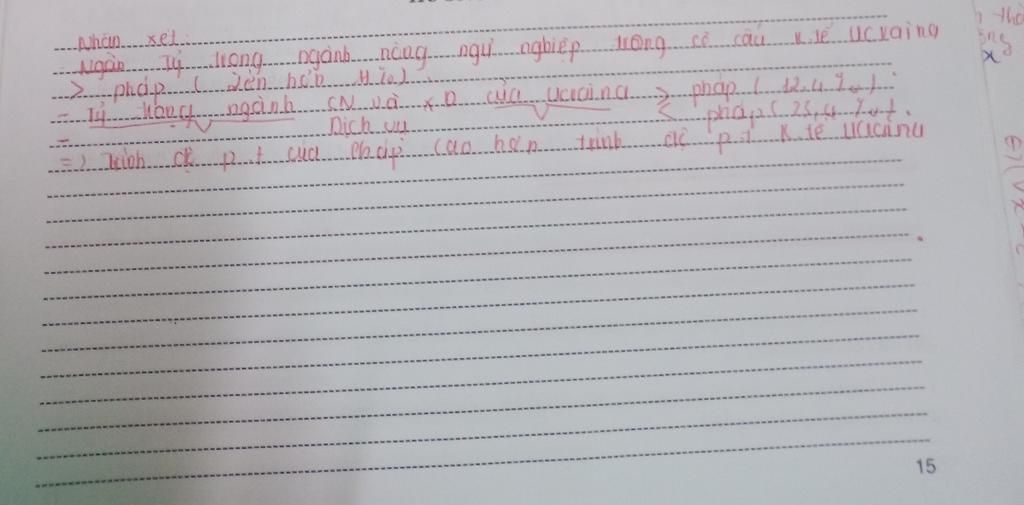 Nhận xét:
Ngân Tỷ trọng ngành nông ngư nghiệp trong cơ cấu k tế Ucraina
> pháp ( hơn
- Tỷ trọng ngành CN và XD của Ucraina > pháp ( 12,4 %).
- Dịch vụ < pháp ( 25,4 %).
=> trình độ p.t của Pháp cao hơn trình độ p.t k tế Ucraina
15